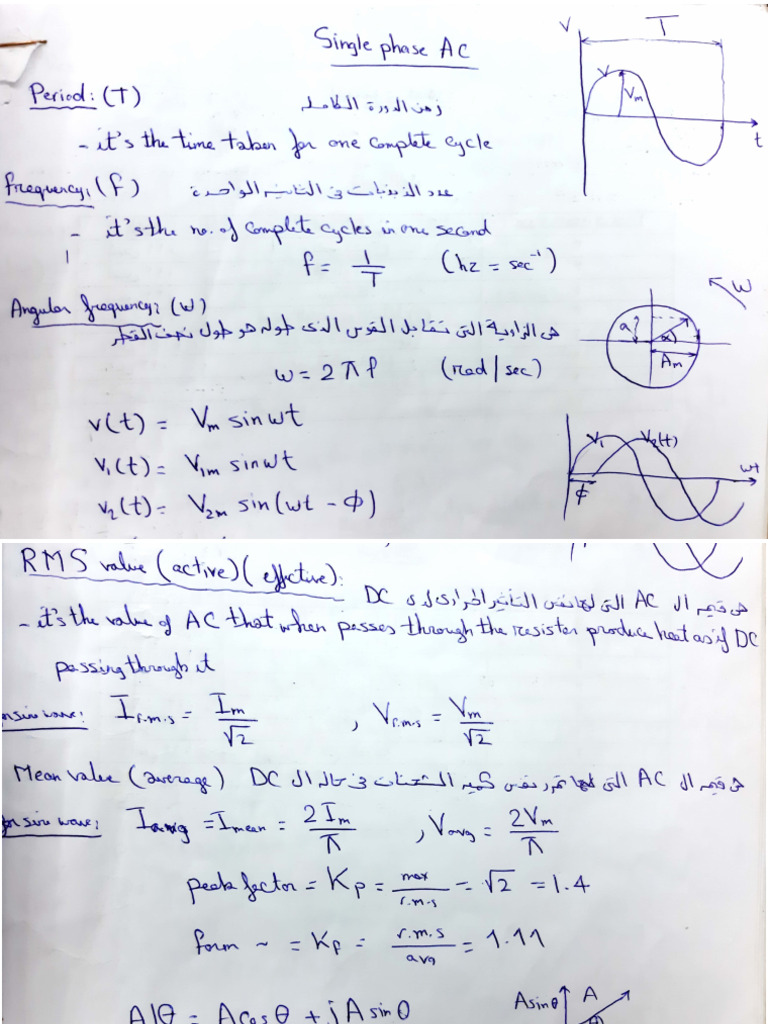 Single phase AC
V
T
Period: (T)
زمن الدورة الكاملة
V
Vm
- it's the time taken for one complete cycle
t
frequency: (f)
عدد الذبذبات فى الثانية الواحدة
- it's the no. of complete cycles in one second
f = 1/T (hz = sec⁻¹)
Angular frequency: (w)
w
هى الزاوية التى تقابل القوس الذى طوله هو طول نصف القطر
a
α
Am
w = 2πf (rad/sec)
v(t) = Vm sin wt
V₁
V₂(t)
v₁(t) = V1m sin wt
wt
ϕ
v₂(t) = V2m sin(wt - ϕ)
RMS value (active)(effective):
هى قيمه ال AC التى لها نفس التأثير الحرارى لل DC
- it's the value of AC that when passes through the resister produce heat as if DC
passing through it
sin wave: Ir.m.s = Im/√2 , Vr.m.s = Vm/√2
Mean value (average) هى قيمه ال AC التى لها تمرر نفس كميه الشحنات فى حاله ال DC
sin wave: Iavg = Imean = 2Im/π , Vavg = 2Vm/π
peak factor = Kp = max/r.m.s = √2 = 1.4
form ~ = Kp = r.m.s/avg = 1.11
A∠θ = A cos θ + j A sin θ
A sin θ
A
θ